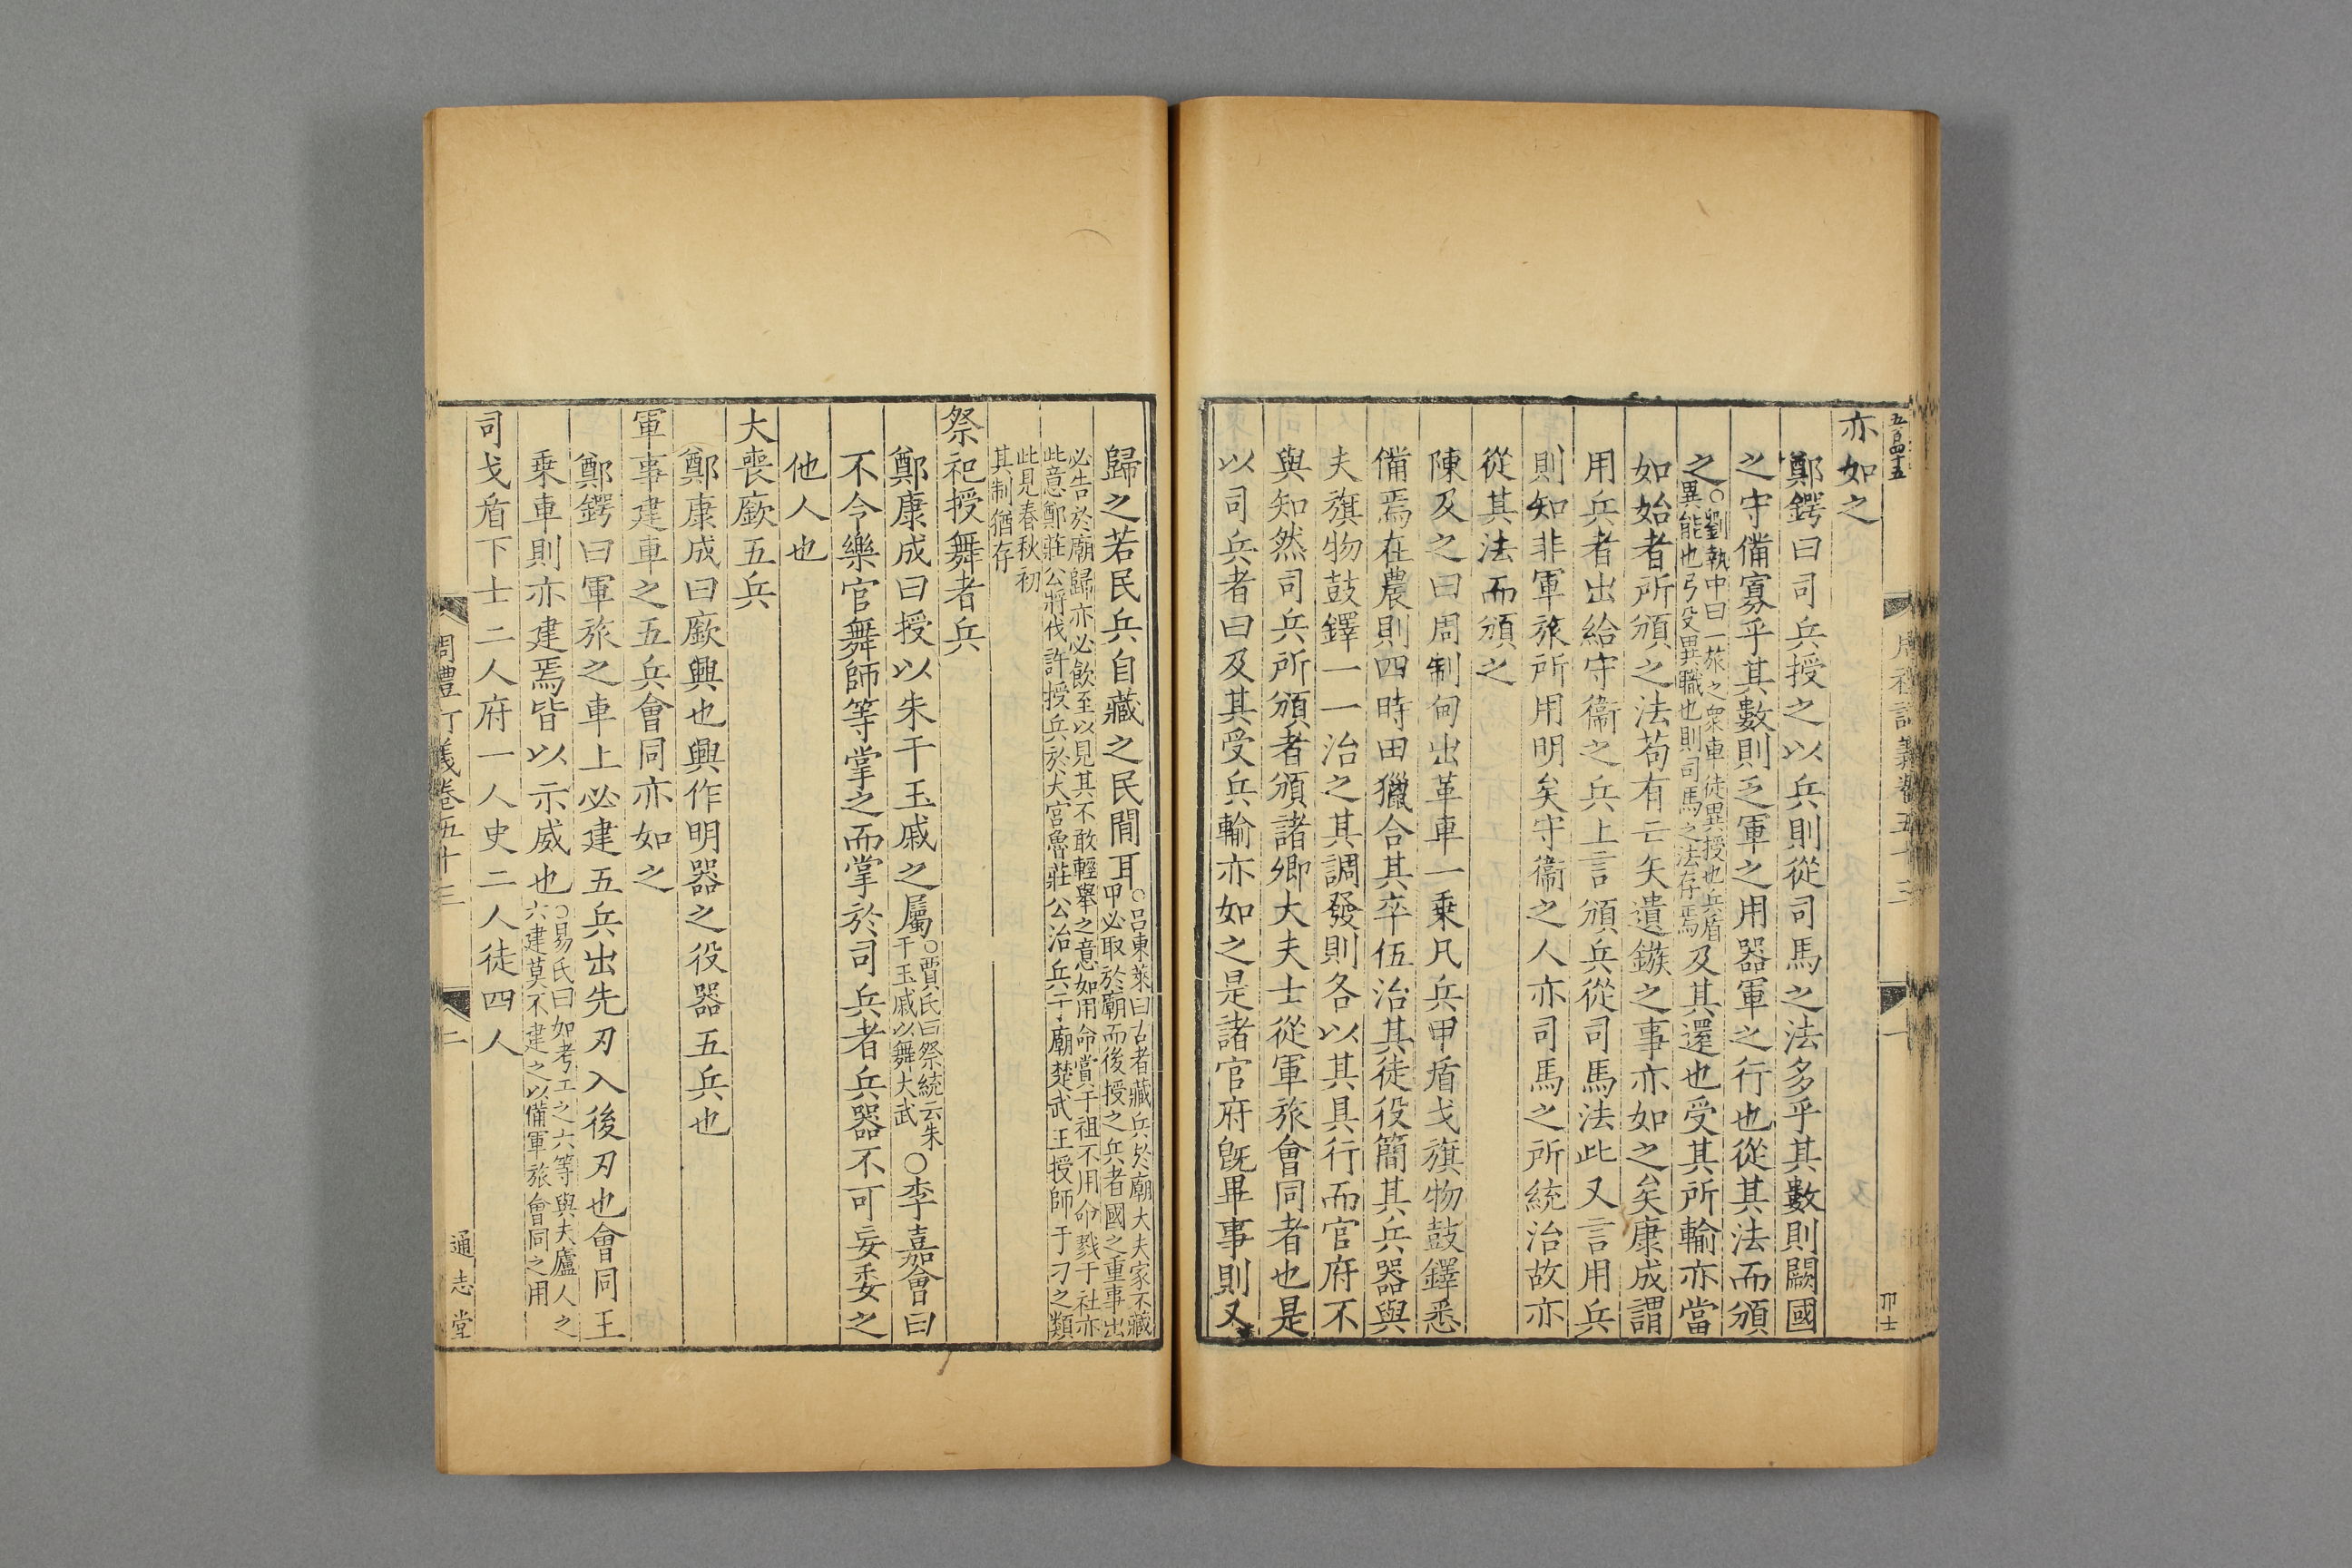 亦如之
鄭鍔曰司兵授之以兵則從司馬之法多乎其數則闕國
之守備寡乎其數則乏軍之用器軍之行也從其法而頒
之○劉執中曰一旅之衆車徒異授也兵盾異能也弓役異職也則司馬之法存焉及其還也受其所輸亦當
如始者所頒之法苟有亡矢遺鏃之事亦如之矣康成謂
用兵者出給守衞之兵上言頒兵從司馬法此又言用兵
則知非軍旅所用明矣守衞之人亦司馬之所統治故亦
從其法而頒之
陳及之曰周制甸出革車一乗凡兵甲盾戈旗物鼓鐸悉
備焉在農則四時田獵合其卒伍治其徒役簡其兵器與
夫旗物鼓鐸一一治之其調發則各以其具行而官府不
與知然司兵所頒者頒諸卿大夫士從軍旅會同者也是
以司兵者曰及其受兵輸亦如之是諸官府旣畢事則又
歸之若民兵自藏之民閒耳○呂東萊曰古者藏兵於廟大夫家不藏甲必取於廟而後授之兵者國之重事出
必告於廟歸亦必飲至以見其不敢輕舉之意如用命賞于祖不用命戮于社亦
此意鄭莊公將伐許授兵於大宮魯莊公治兵于廟楚武王授師于刁之類
此見春秋初
其制猶存
祭祀授舞者兵
鄭康成曰授以朱干玉戚之屬○賈氏曰祭統云朱干玉戚以舞大武○李嘉會曰
不令樂官舞師等掌之而掌於司兵者兵器不可妄委之
他人也
大喪廞五兵
鄭康成曰廞興也興作明器之役器五兵也
軍事建車之五兵會同亦如之
鄭鍔曰軍旅之車上必建五兵出先刃入後刃也會同王
乗車則亦建焉皆以示威也○易氏曰如考工之六等與夫廬人之六建莫不建之以備軍旅會同之用
司戈盾下士二人府一人史二人徒四人
周禮訂義卷五十三
二
通志堂